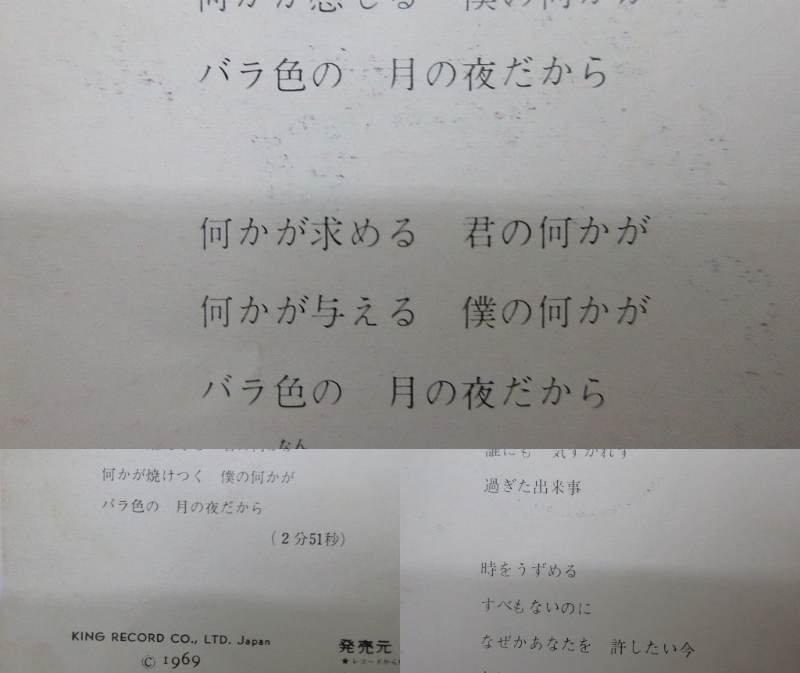 何かが感じる　僕の何かが
バラ色の　月の夜だから
何かが求める　君の何かが
何かが与える　僕の何かが
バラ色の　月の夜だから
なん
何かが焼けつく　僕の何かが
バラ色の　月の夜だから
(2分51秒)
KING RECORD CO., LTD. Japan
© 1969
発売元
★レコードから
誰にも　気ずかれず
過ぎた出来事
時をうずめる
すべもないのに
なぜかあなたを　許したい今